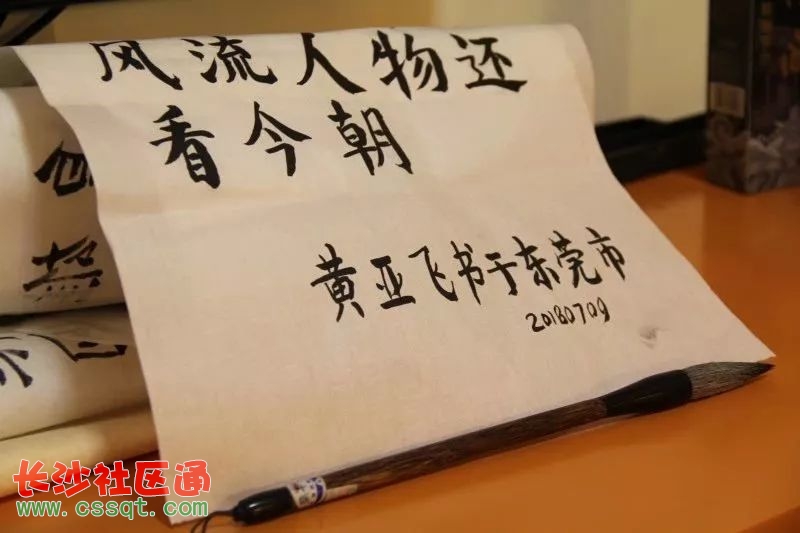 风流人物还
看今朝
黄亚飞书于东莞市
20180709
长沙社区通
www.cssqt.com